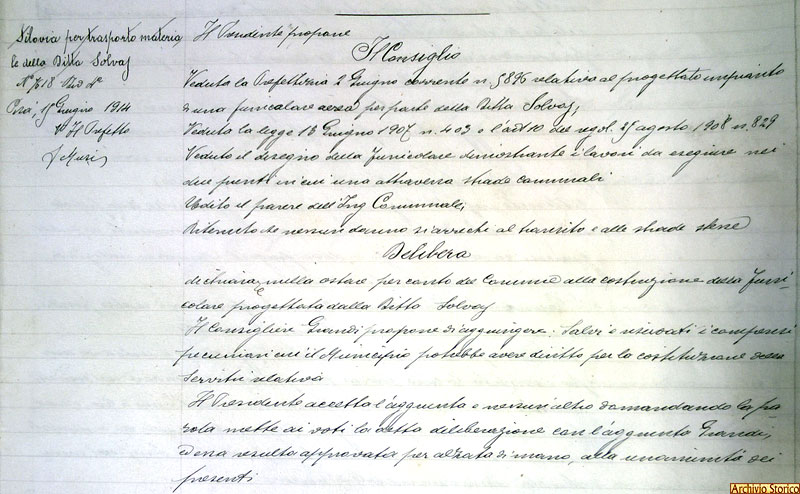 Filovia per trasporto materia
le della Ditta Solvay
N° 7618 Div 2ª
Pisa, 15 Giugno 1914
Il Prefetto
Il Presidente propone
Il Consiglio
Veduta la Prefettizia 2 Giugno corrente n. 5896 relativa al progettato impianto
di una funicolare aerea per parte della Ditta Solvay;
Veduta la legge 13 Giugno 1907 n. 403 e l'art 10 del regol. 25 agosto 1908 n. 829
Veduto il disegno della funicolare dimostrante i lavori da eseguire nei
due punti in cui una attraversa strade comunali
Udito il parere dell'Ing Comunale;
Ritenuto che nessun danno si arreche al transito e alle strade stesse
Delibera
dichiara nulla ostare per conto del Comune alla costruzione della funi
colare progettata dalla Ditta Solvay
Il Consigliere Grandi propone di aggiungere: Salvi e riservati i compensi
pecuniari cui il Municipio potrebbe avere diritto per la costituzione della
servitù relativa
Il Presidente accetta l'aggiunta e nessun altro domandando la pa
rola mette ai voti la detta deliberazione con l'aggiunta Grandi,
ed essa resulta approvata per alzata di mano, alla unanimità dei
presenti
Archivio Storico